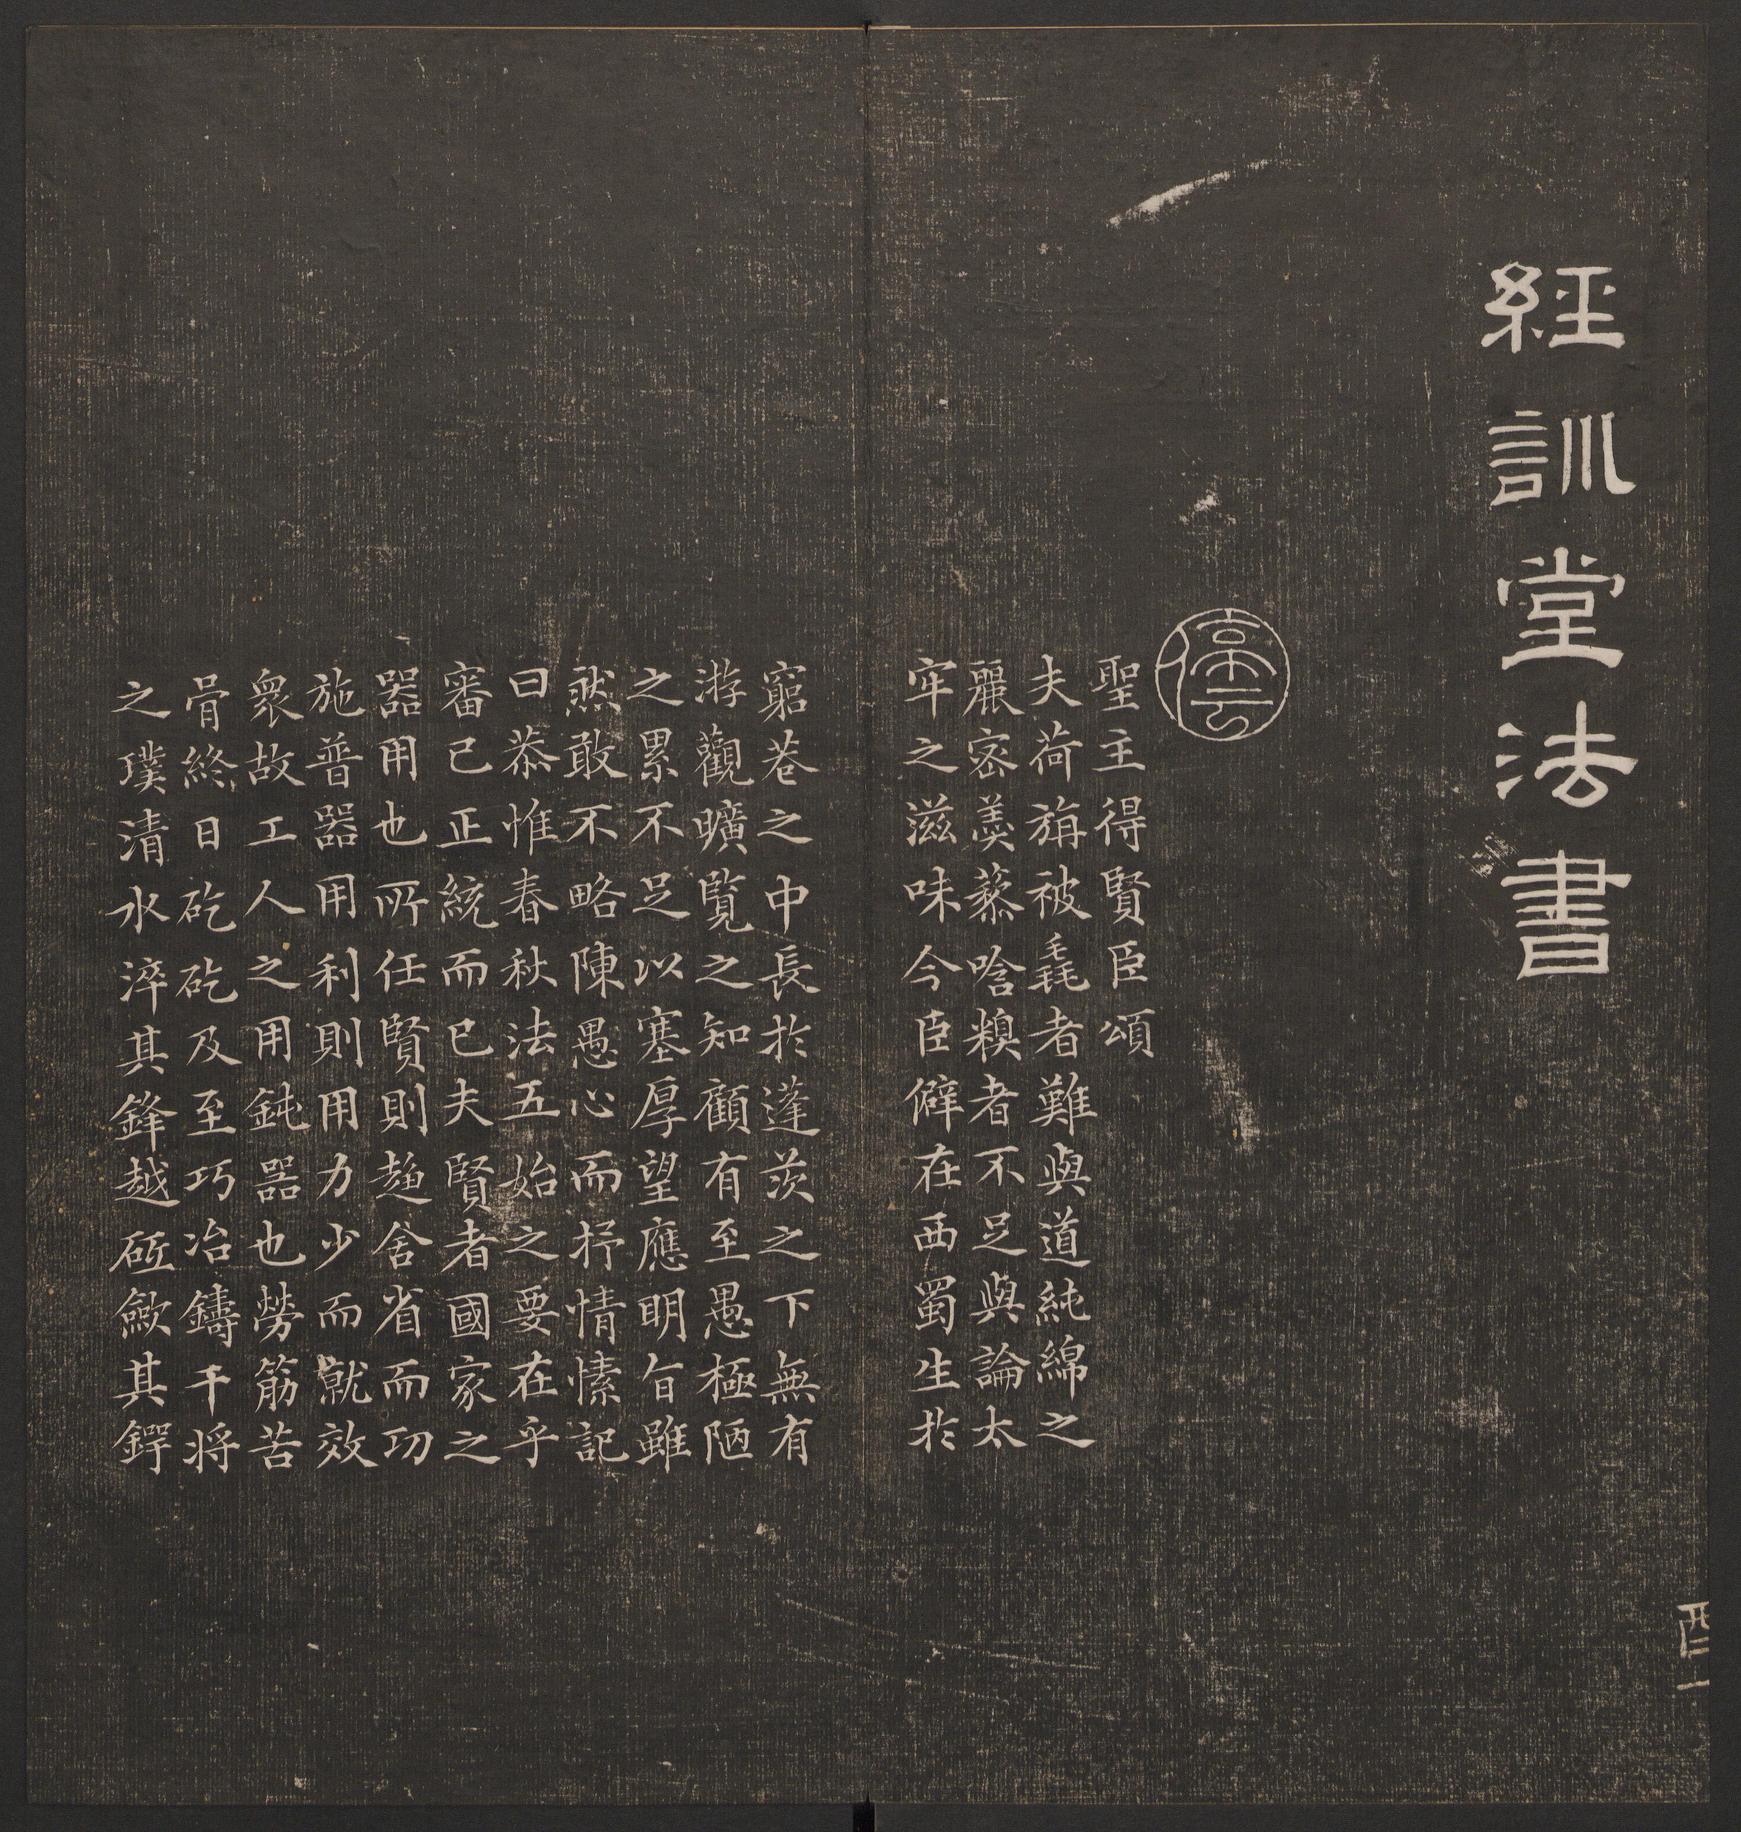 經訓堂法書
聖主得賢臣頌
夫荷旃被毳者難與道純綿之
麗密羹藜唅糗者不足與論太
牢之滋味今臣僻在西蜀生於
窮巷之中長於蓬茨之下無有
游觀曠覽之知顧有至愚極陋
之累不足以塞厚望應明旨雖
然敢不略陳愚心而抒情愫記
曰恭惟春秋法五始之要在乎
審己正統而已夫賢者國家之
器用也所任賢則趍舍省而功
施普器用利則用力少而就效
衆故工人之用鈍器也勞筋苦
骨終日矻矻及至巧冶鑄干将
之璞清水淬其鋒越砥斂其鍔
酉一